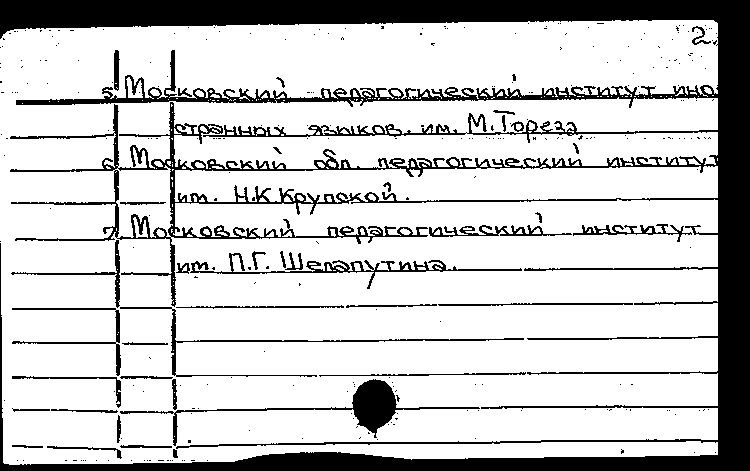 2.
5. Московский педагогический институт ино-
странных языков. им. М.Тореза.
6. Московский обл. педагогический институт
им. Н.К Крупской.
7. Московский педагогический институт
им. П.Г. Шелапутина.